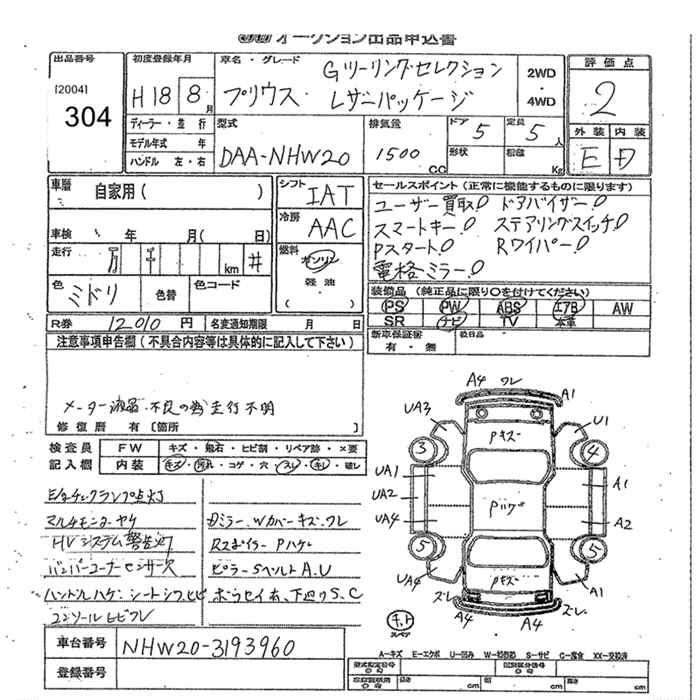 オークション出品申込書
出品番号
[2004]
304
初度登録年月
H18 8月
ディーラー・並行
モデル年式 年
ハンドル 左・右
車名・グレード
Gツーリングセレクション
プリウス レザーパッケージ
2WD
・
4WD
評価点
2
外装 内装
E D
型式
DAA-NHW20
排気量
1500 CC
ドア 5
定員 5 人
形状
積載 Kg
車歴
自家用( )
車検 年 月( 日)
走行
万 千 km #
色
ミドリ
色替
色コード
シフト
IAT
冷房
AAC
燃料
ガソリン
軽油
( )
セールスポイント(正常に機能するものに限ります)
ユーザー買取! ドアバイザー!
スマートキー! ステアリングスイッチ!
Pスタート! Rワイパー!
電格ミラー!
装備品 (純正品に限り〇を付けてください)
PS PW ABS エアB AW
SR ナビ TV 本革
新車保証書
有・無
後日品
R券 12010 円
名変通知期限 月 日
注意事項申告欄(不具合内容等は具体的に記入して下さい)
メーター液晶不良の為走行不明
修復歴 有 [箇所 ]
検査員
記入欄
FW キズ・飛石・ヒビ割・リペア跡・×要
内装 キズ・汚れ・コゲ・穴・スレ・キレ・破レ
E/gチェックランプ点灯
マルチモニターヤケ
HVシステム警告灯
バンパーコーナーセンサー欠
ハンドルハゲ・シートシワヒビ
コンソールヒビワレ
Dミラー、Wカバーキズ・ワレ
Rスポイラー Pハゲ
ピラー Sベルト A.U
下廻りS.C
A4 ワレ A1
UA3 U1
Pキズ
3 4
UA1 A1
UA2 Pハゲ
UA4 A2
5 5
UA4 Pキズ A1
ズレ ズレ
A4 A4
キット
スペア
車台番号
NHW20-3193960
登録番号
A-キズ E-エクボ U-凹み S-サビ C-腐食 XX-交換済
型式指定番号
類別区分番号
長さ cm 幅 cm 高さ cm